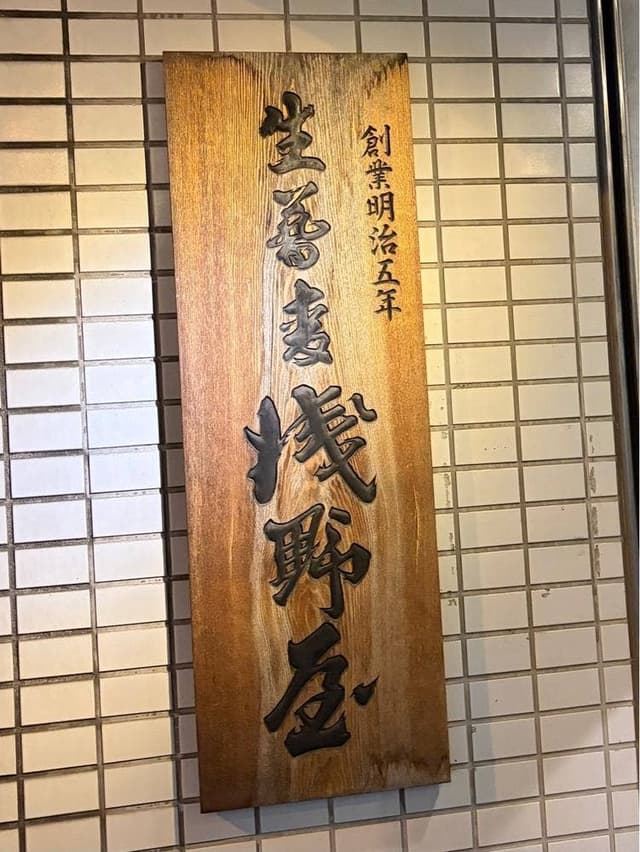 創業明治五年
生蕎麦浅野屋